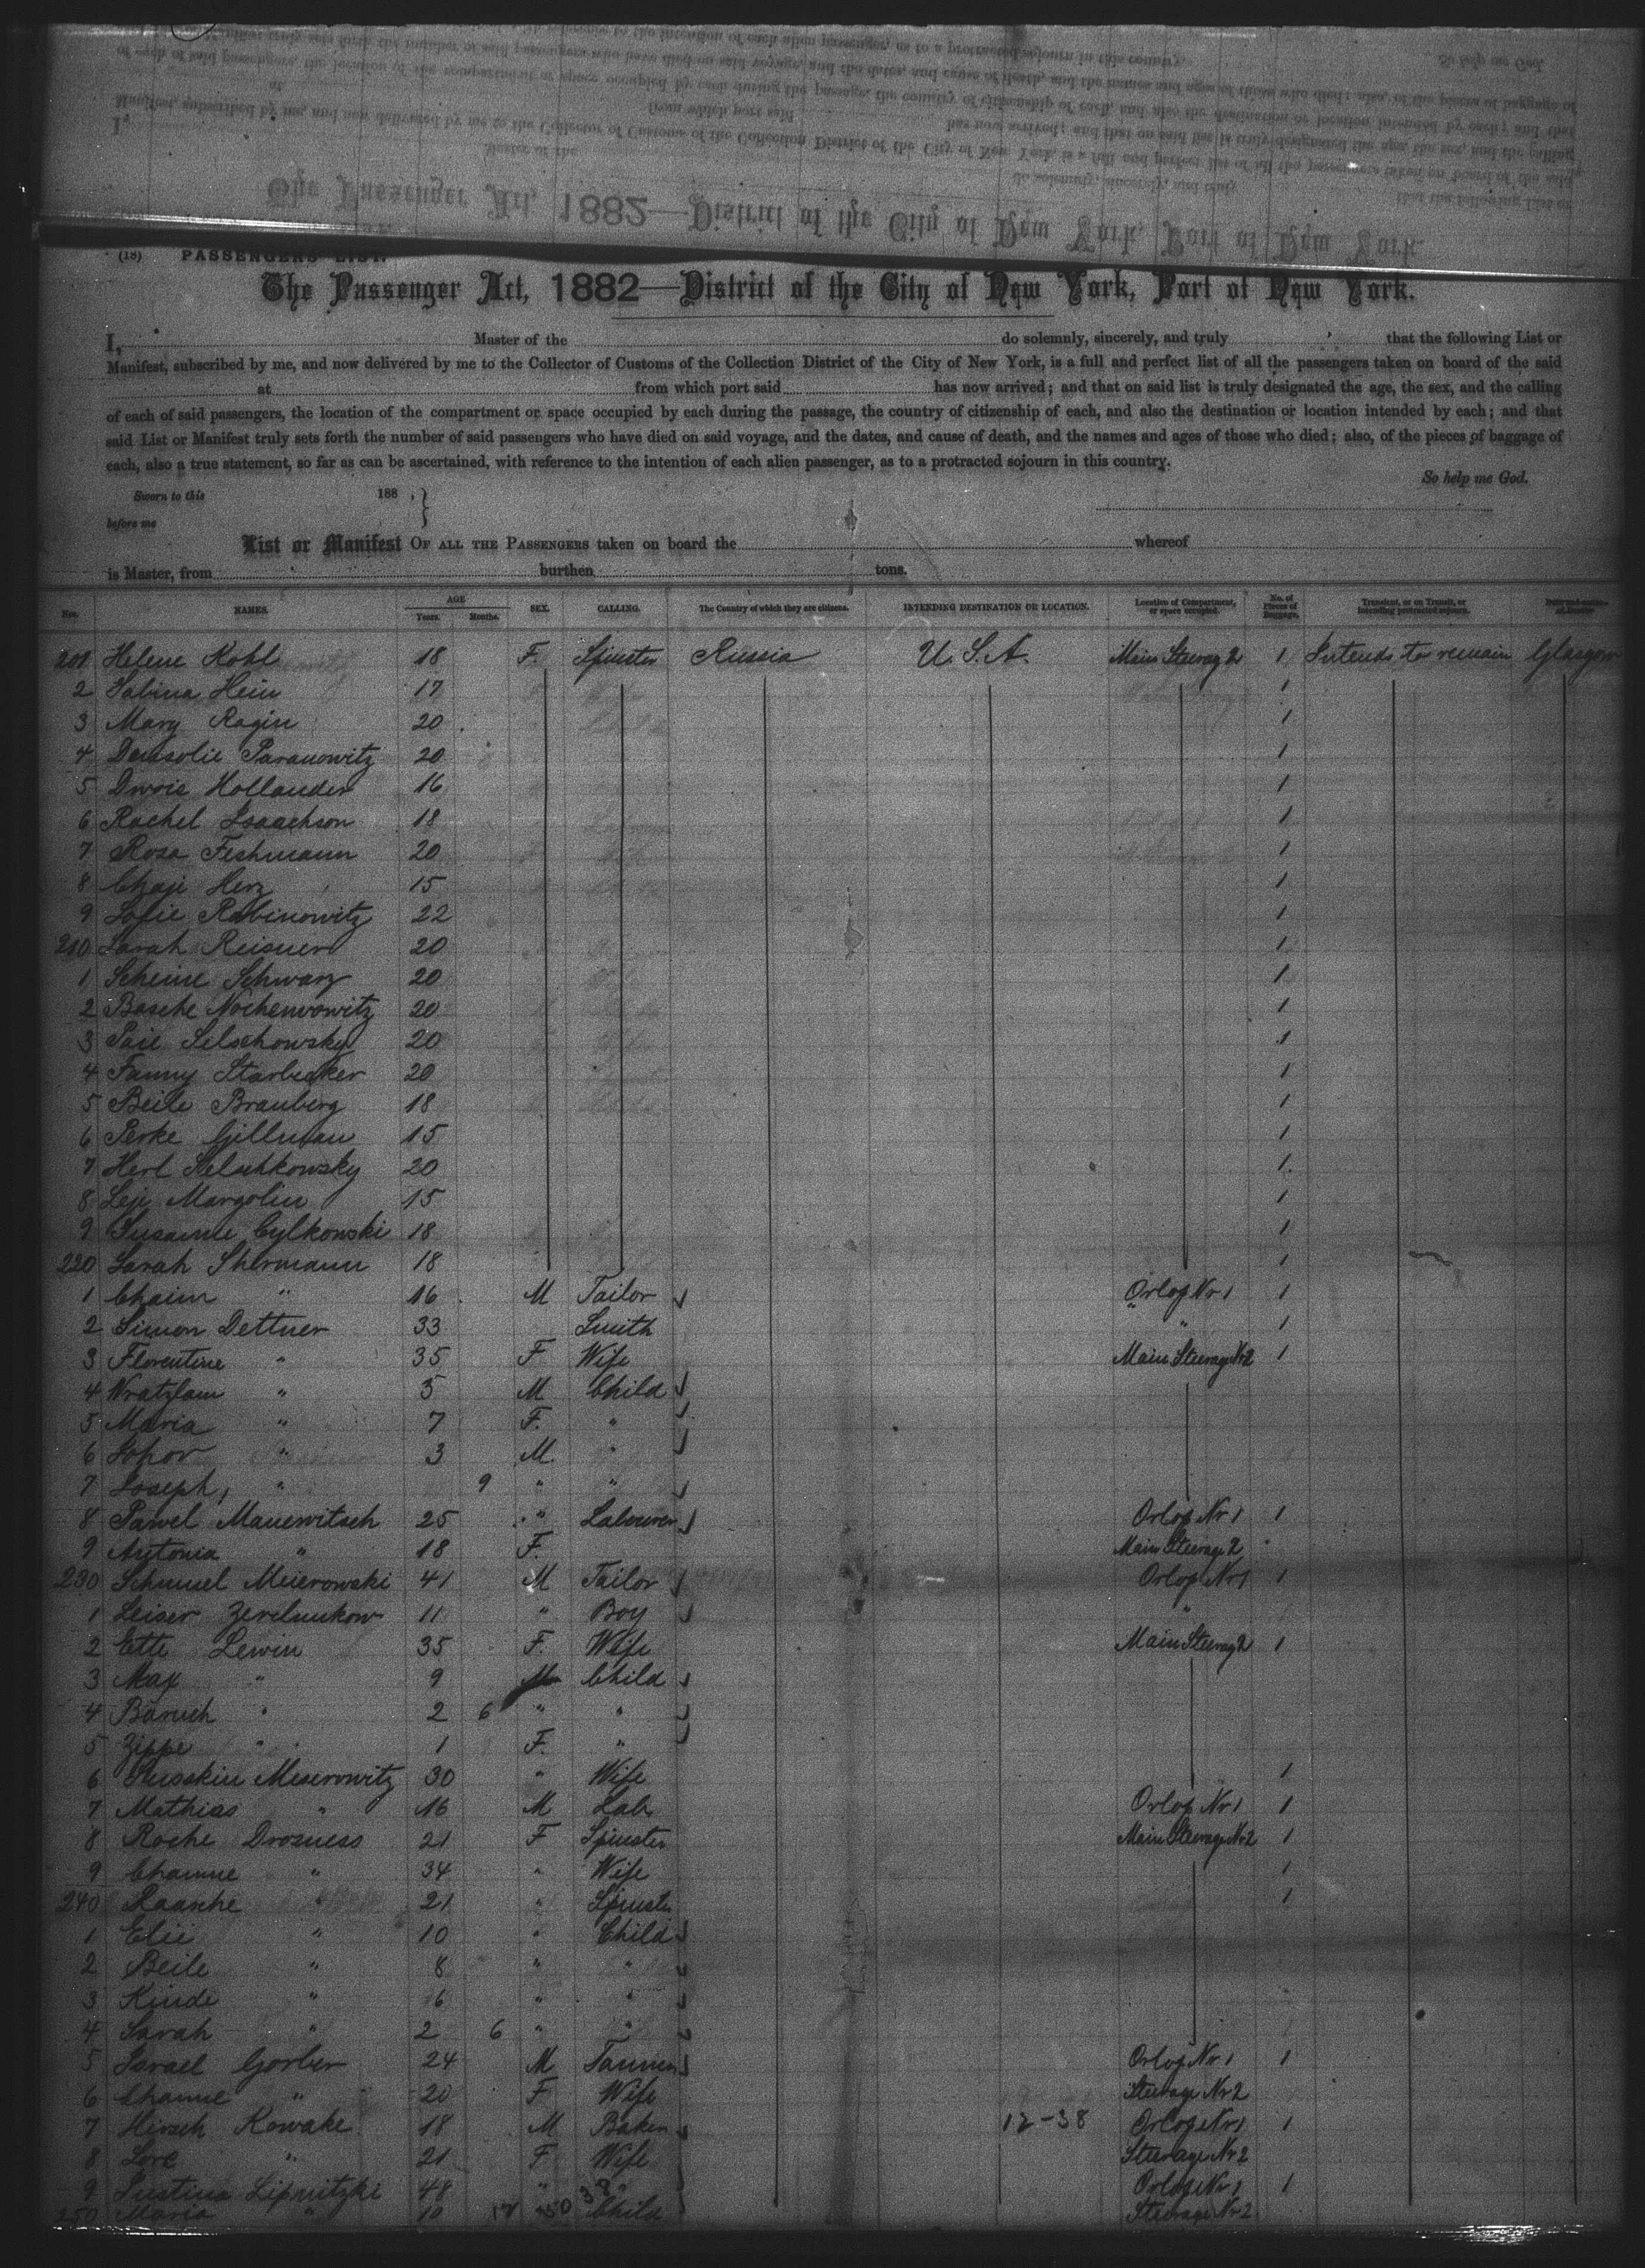 (18) PASSENGERS' LIST.
The Passenger Act, 1882—District of the City of New York, Port of New York.
I, Master of the do solemnly, sincerely, and truly that the following List or
Manifest, subscribed by me, and now delivered by me to the Collector of Customs of the Collection District of the City of New York, is a full and perfect list of all the passengers taken on board of the said
at from which port said has now arrived; and that on said list is truly designated the age, the sex, and the calling
of each of said passengers, the location of the compartment or space occupied by each during the passage, the country of citizenship of each, and also the destination or location intended by each; and that
said List or Manifest truly sets forth the number of said passengers who have died on said voyage, and the dates, and cause of death, and the names and ages of those who died; also, of the pieces of baggage of
each, also a true statement, so far as can be ascertained, with reference to the intention of each alien passenger, as to a protracted sojourn in this country.
So help me God.
Sworn to this 188 ,
before me
List or Manifest OF ALL THE PASSENGERS taken on board the whereof
is Master, from burthen tons.
Nos. NAMES. AGE Years. Months. SEX. CALLING. The Country of which they are citizens. INTENDING DESTINATION OR LOCATION. Location of Compartment, or space occupied. No. of Pieces of Baggage. Transient, or in Transit, or intending protracted sojourn.
201 Helene Kohl 18 F. Spinster Russia U.S.A. Main Steerag 2 1 Intends to remain Glasgow
2 Sabina Hein 17 1
3 Mary Ragin 20 1
4 Paranowitz 20 1
5 Dwore Hollander 16 1
6 Rachel Isaachson 18 1
7 Rosa Feshmann 20 1
8 Chaje Herz 15 1
9 Sofie Rabinowitz 22 1
210 Sarah Reisner 20 1
1 Scheine Schwarz 20 1
2 Basche Nochemowitz 20 1
3 Silschowsky 20 1
4 Fanny Starbecker 20 1
5 Beile Brauberg 18 1
6 Perke Gillman 15 1
7 Herl Selschkowsky 20 1
8 Leje Margolin 15 1
9 Susanne Cylkowski 18 1
220 Sarah Shermann 18 1
1 Chaim " 16 M Tailor Orlop Nr 1 1
2 Simon Dettner 33 Smith " 1
3 Florentine " 35 F Wife Main Steerage Nr 2 1
4 Wratzlaw " 5 M Child
5 Maria " 7 F. "
6 " 3 M. "
7 Joseph, " 9 " "
8 Pawel Manewitsch 25 " Labourer Orlop Nr 1 1
9 Antonia " 18 F. Main Steerage 2
230 Schmuel Meierowski 41 M Tailor Orlop Nr 1 1
1 Leiser 11 " Boy "
2 Ette Lewin 35 F. Wife Main Steerag 2 1
3 Max " 9 M Child
4 Baruch " 2 6 " "
5 Zippe " 1 F. "
6 Meierowitz 30 " Wife 1
7 Mathias " 16 M Lab. Orlop Nr 1 1
8 Roche Drosness 21 F Spinster Main Steerage Nr 2 1
9 Channe " 34 " Wife 1
240 Raasche " 21 " Spinster 1
1 Elii " 10 " Child
2 Beile " 8 " "
3 Kinde " 6 " "
4 Sarah " 2 6 " "
5 Israel Gorber 24 M Tanner Orlop Nr 1 1
6 Channe " 20 F Wife Steerage Nr 2
7 Hirsch Kowake 18 M Baker 12-38 Orlop Nr 1 1
8 Lore " 21 F Wife Steerage Nr 2
9 Justina Lipnitzki 48 " Orlop Nr 1 1
250 Maria " 10 Child Steerage Nr 2